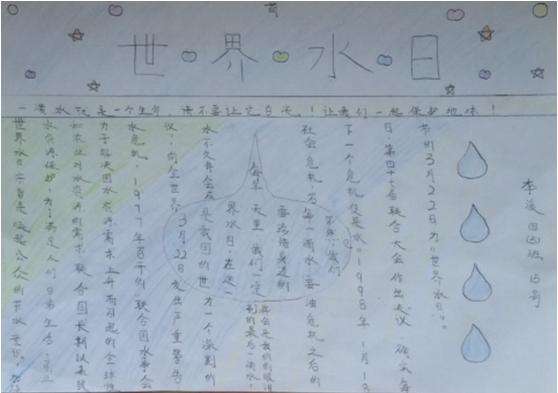 世界水日
一滴水就是一个生命,请不要让它白流!让我们一起保护地球!
世界水日宗旨是唤起公众的节水意识,加强
水资源保护。为了满足人们日常生活、商业
和农业对水资源的需求,联合国长期以来致
力于解决因水资源需求上升而引起的全球性
水危机。1977年召开的“联合国水事会
议”,向全世界发出严重警告:
水不久将会成为一个深刻的
社会危机,危机之后的
下一个危机便是水。1993年1月18
日,第四十七届联合大会作出决议,确定每
年的3月22日为“世界水日”。
3月22日
是我国的世
界水日,在这一
天里,我们一定
要珍惜身边的
每一滴水,要
不然,我们
四班 15号